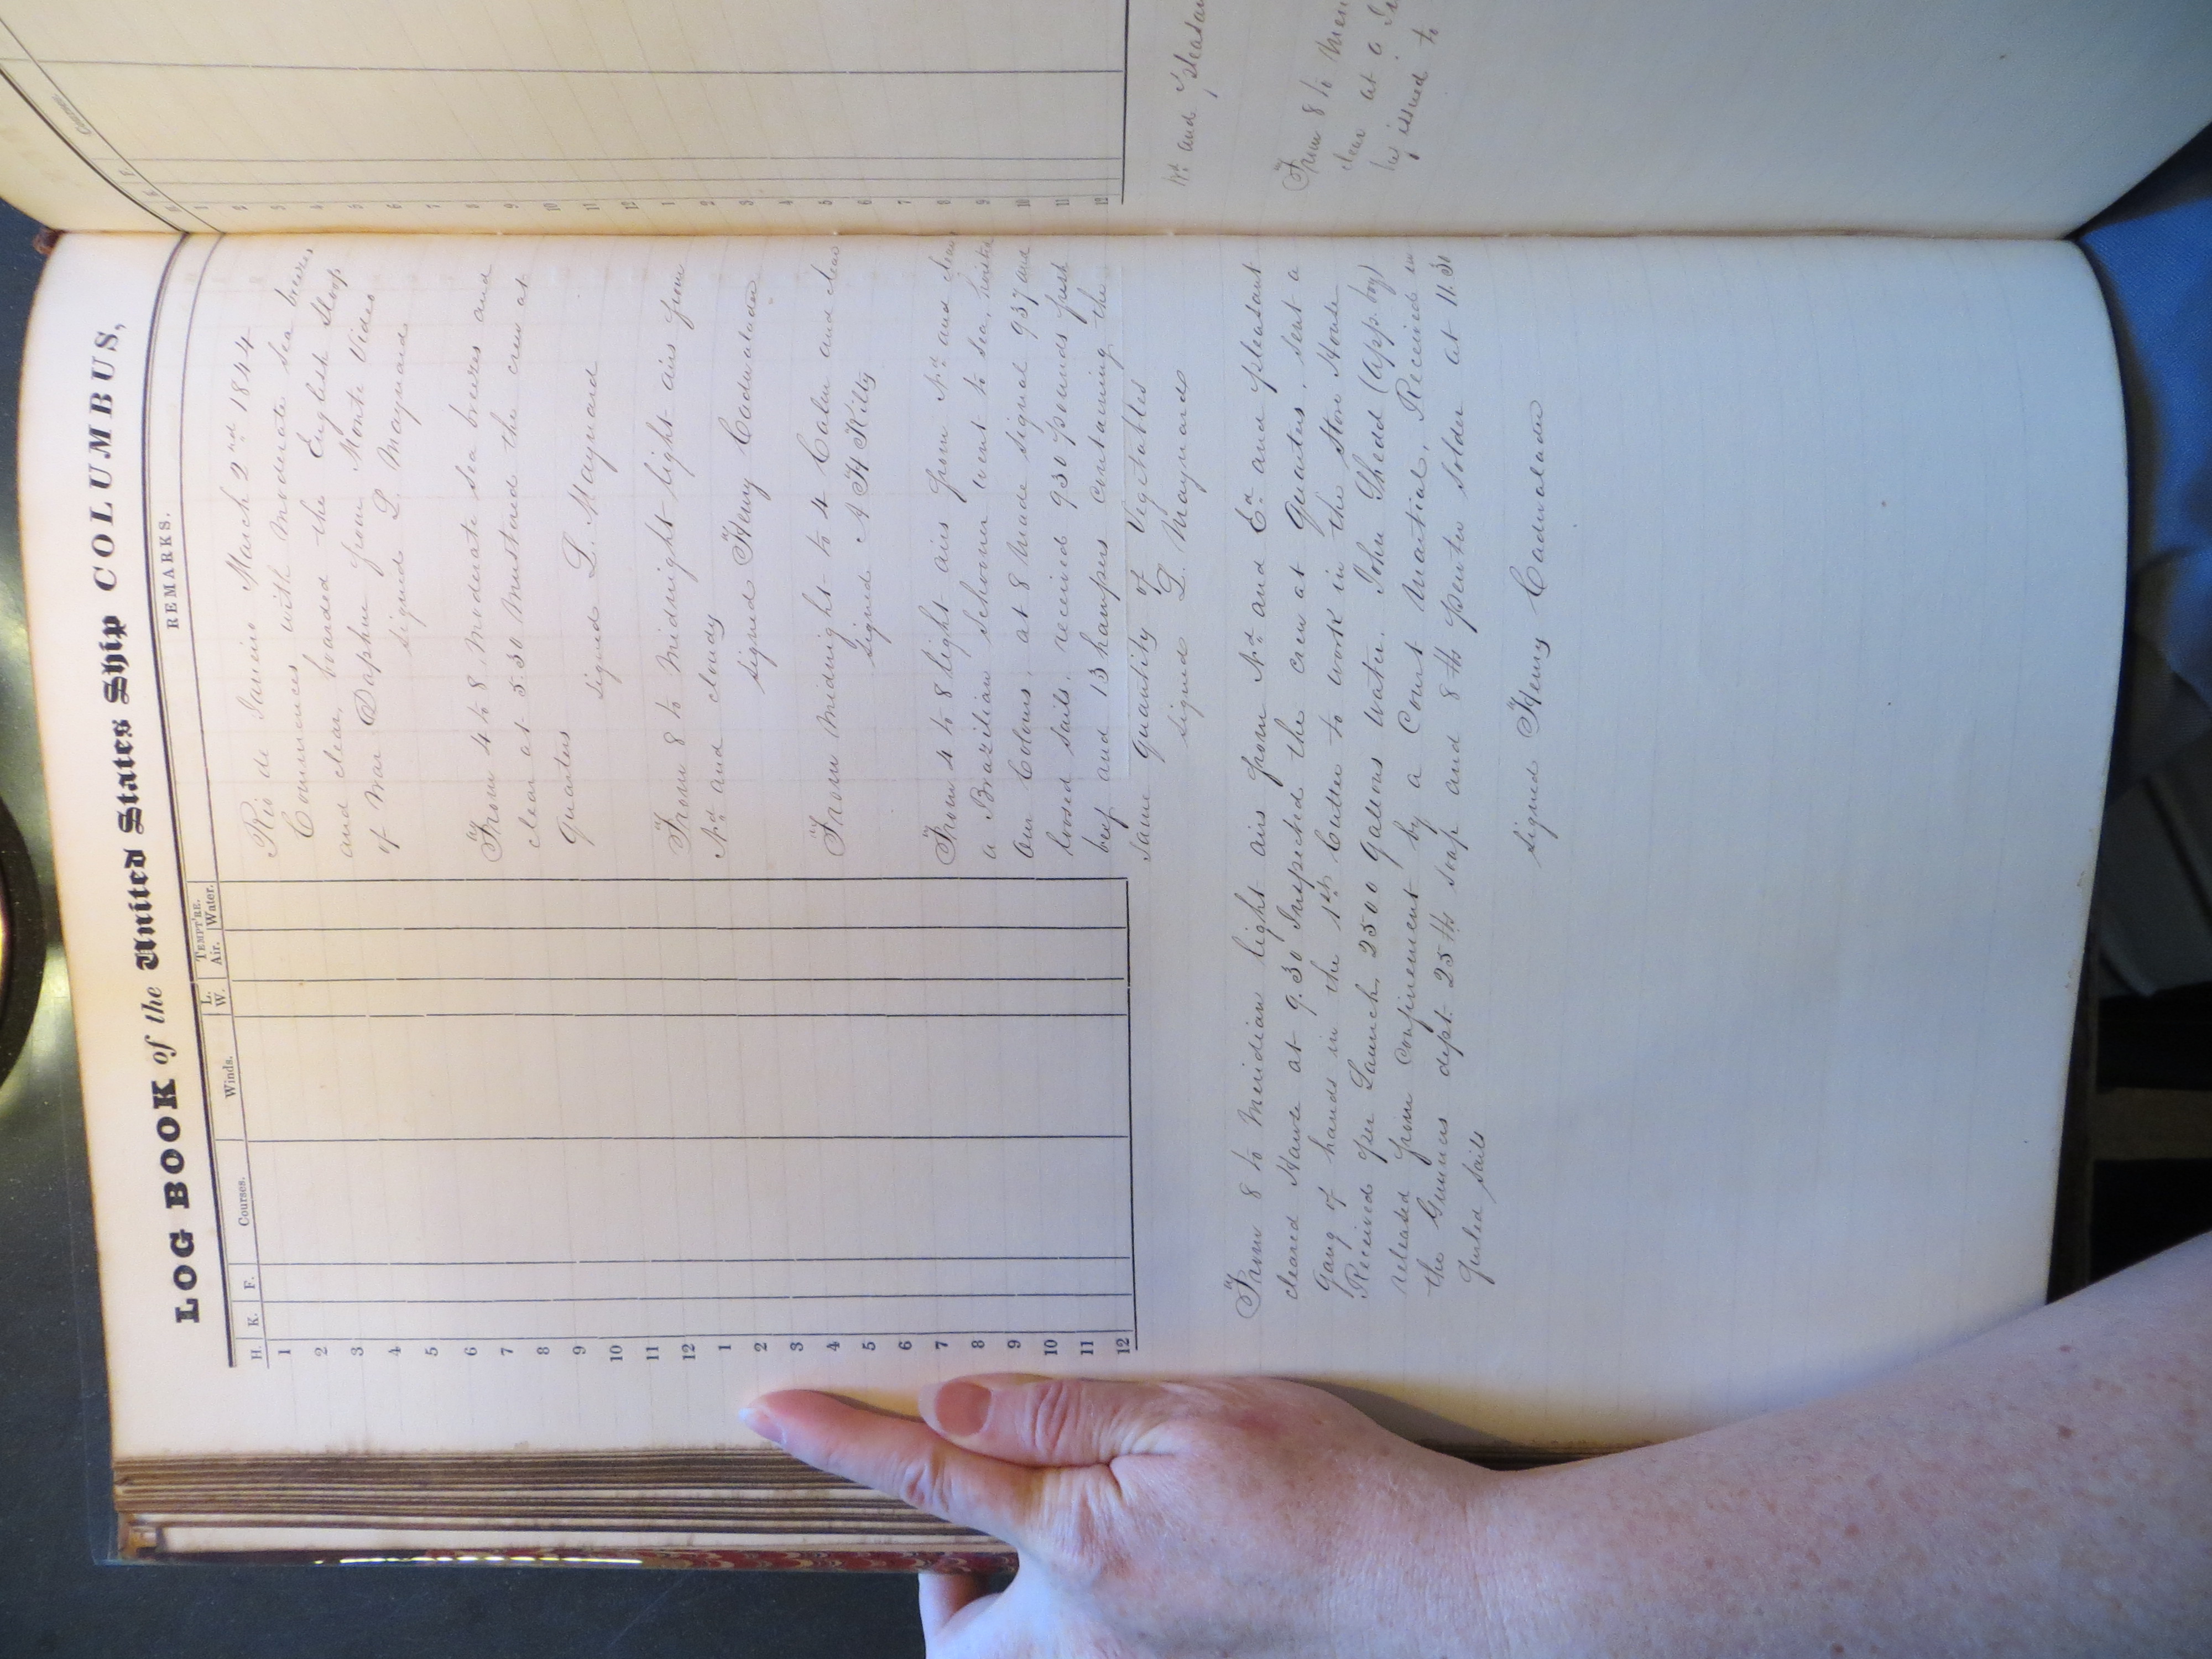 LOG BOOK of the United States Ship COLUMBUS,
H. K. F. Courses. Winds. L. W. TEMPT'RE. Air. Water. REMARKS.
1
2
3
4
5
6
7
8
9
10
11
12
1
2
3
4
5
6
7
8
9
10
11
12
Rio de Janeiro March 2nd 1844
Commences with Moderate Sea breezes
and clear, boarded the English Sloop
of War Daphne from Monte Video
signed L. Maynard
"From 4 to 8 Moderate Sea breezes and
clear at 5.30 Mustered the crew at
Quarters
signed L. Maynard
"From 8 to Midnight light airs from
Nd and cloudy
signed Henry Cadwalader
"From Midnight to 4 Calm and clear
signed A H Kilty
"From 4 to 8 light airs from Nd and clear
a Brazilian Schooner went to sea, hoisted
our Colours. at 8 Made signal 937 and
loosed sails. received 930 pounds fresh
beef and 13 hampers containing the
same quantity of Vegetables
signed L. Maynard
"From 8 to Meridian light airs from Nd and Ed and pleasant
cleared Hawse at 9.30 Inspected the crew at Quarters. sent a
Gang of hands in the 1st Cutter to work in the Store House
Received per Launch, 2500 Gallons water. John Shedd (App. boy)
released from confinement by a Court Martial. Received in
the Gunners dept 25 lbs soap and 8 lbs pewter solder at 11.30
furled sails
signed Henry Cadwalader
Course
F.
K.
H.
1
2
3
4
5
6
7
8
9
10
11
12
1
2
3
4
5
6
7
8
9
10
11
12
Nd and pleasan
"From 8 to
clear at
issued to